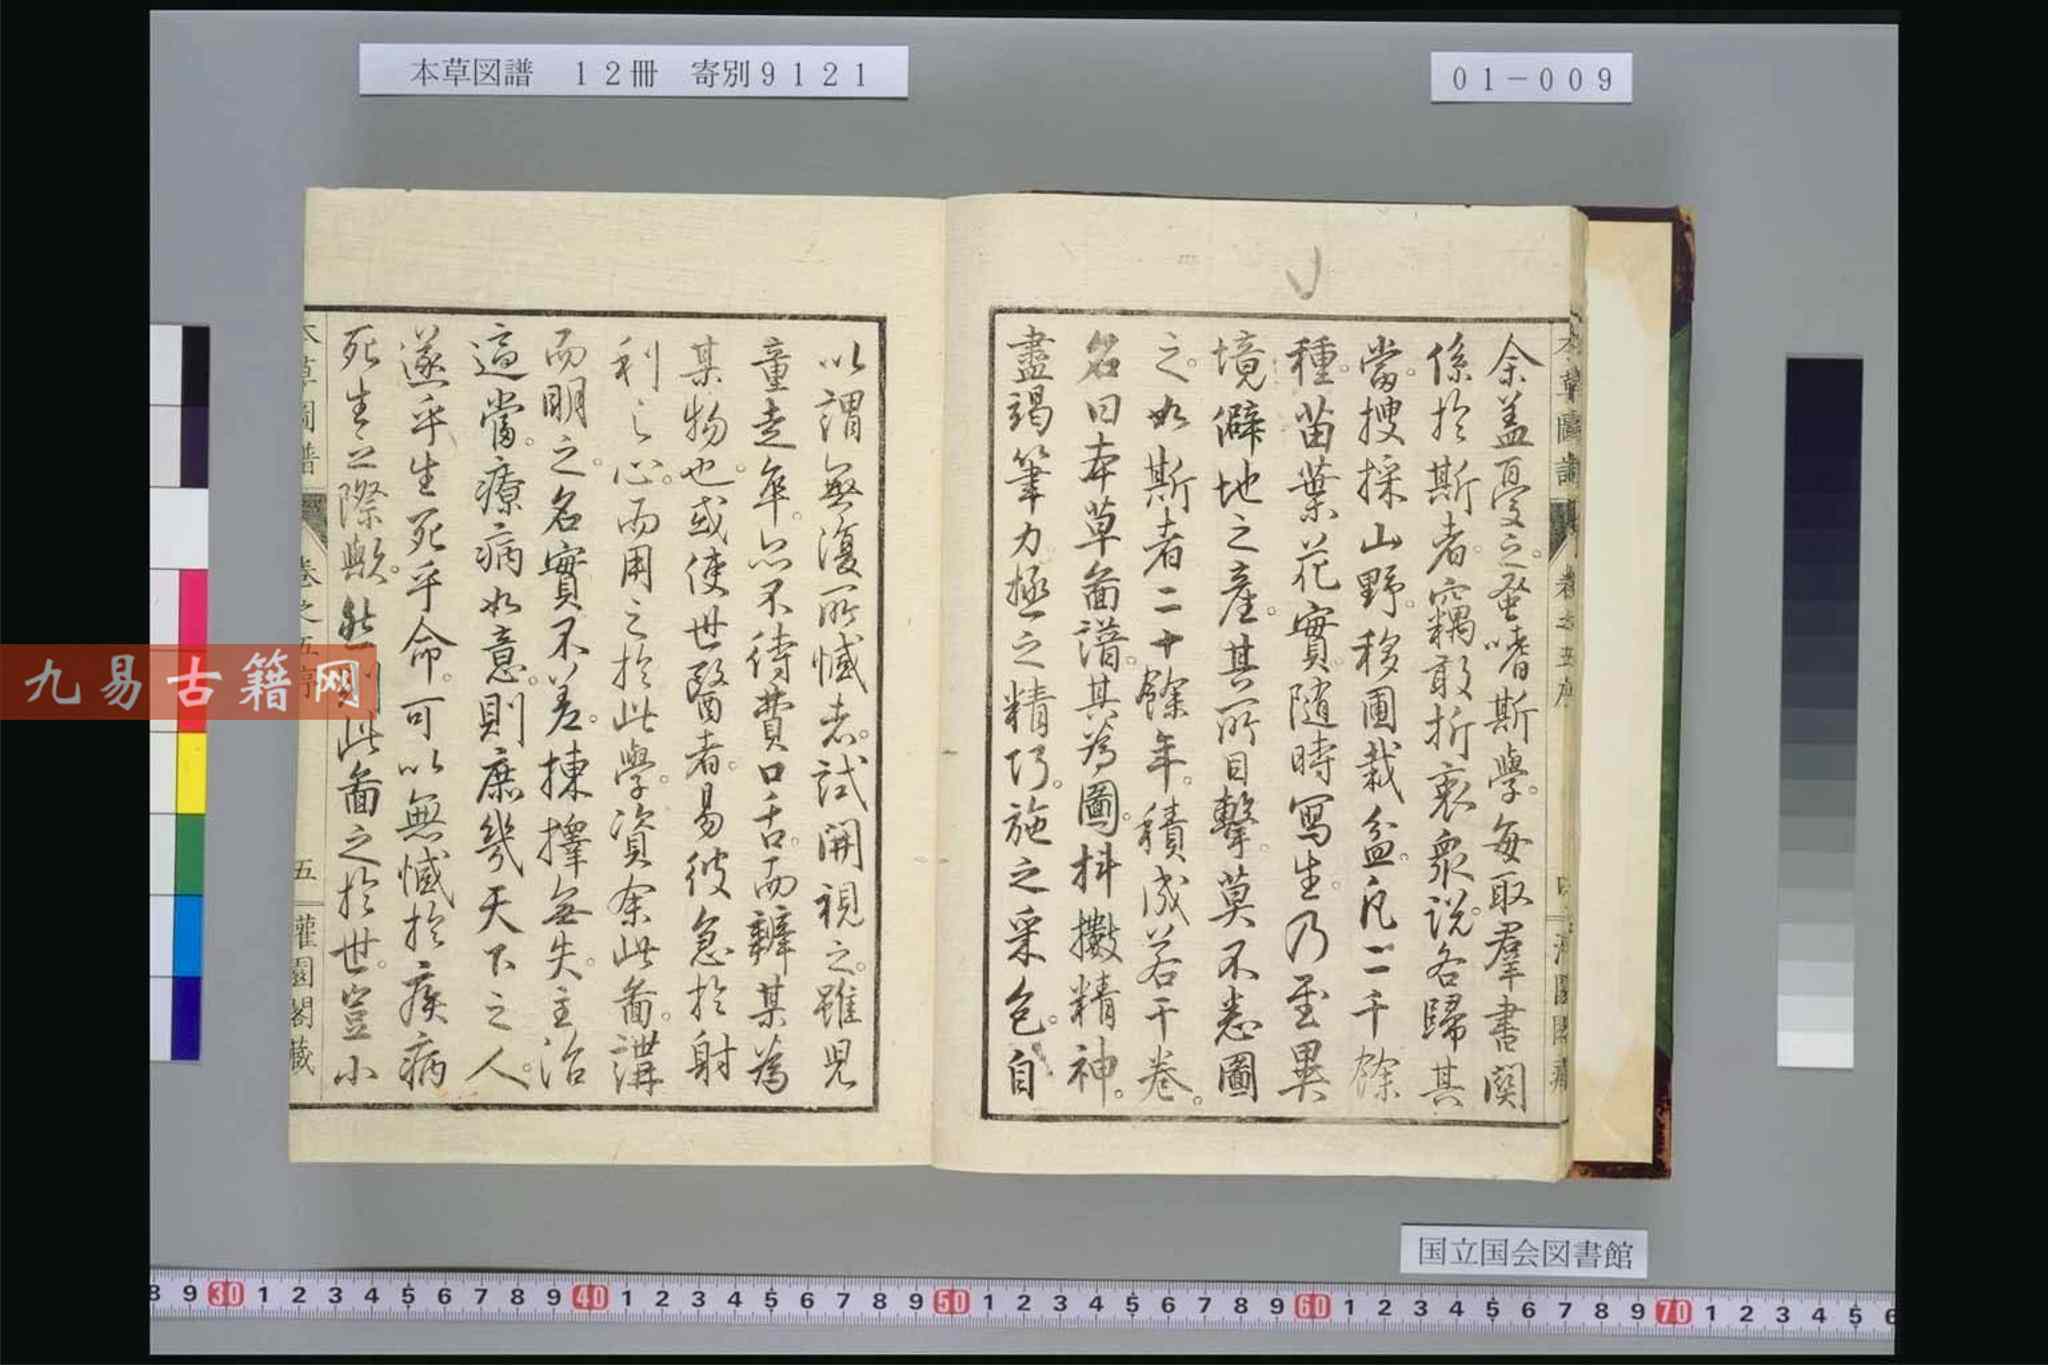 本草図譜　１２冊　寄別９１２１
０１－００９
余蓋憂之蚤嗜斯學。每取羣書関
係於斯者。竊敢折衷衆說。各歸其
當。搜採山野。移圃栽盆。凡二千餘
種。苗葉花實。隨時寫生。乃至異
境僻地之產。其所目擊。莫不悉圖
之。如斯者二十餘年。積成若干卷。
名曰本草啚譜。其為圖。抖擻精神。
盡竭筆力。極之精巧。施之采色。自
以謂無復所憾者。試開視之。雖兒
童走卒。亦不待費口舌。而辨某為
某物也。或使世醫者。易彼急於射
利之心。而用之於此學。資余此啚。講
而明之。名實不差。揀擇無失。主治
適當。療病如意。則庶幾天下之人。
遂乎生死乎命。可以無憾於疾病
死生之際歟。然則此啚之於世。豈小
本草圖譜
卷之五序
五
灌園閣藏
九易古籍网
国立国会図書館
8 9 30 1 2 3 4 5 6 7 8 9 40 1 2 3 4 5 6 7 8 9 50 1 2 3 4 5 6 7 8 9 60 1 2 3 4 5 6 7 8 9 70 1 2 3 4 5 6